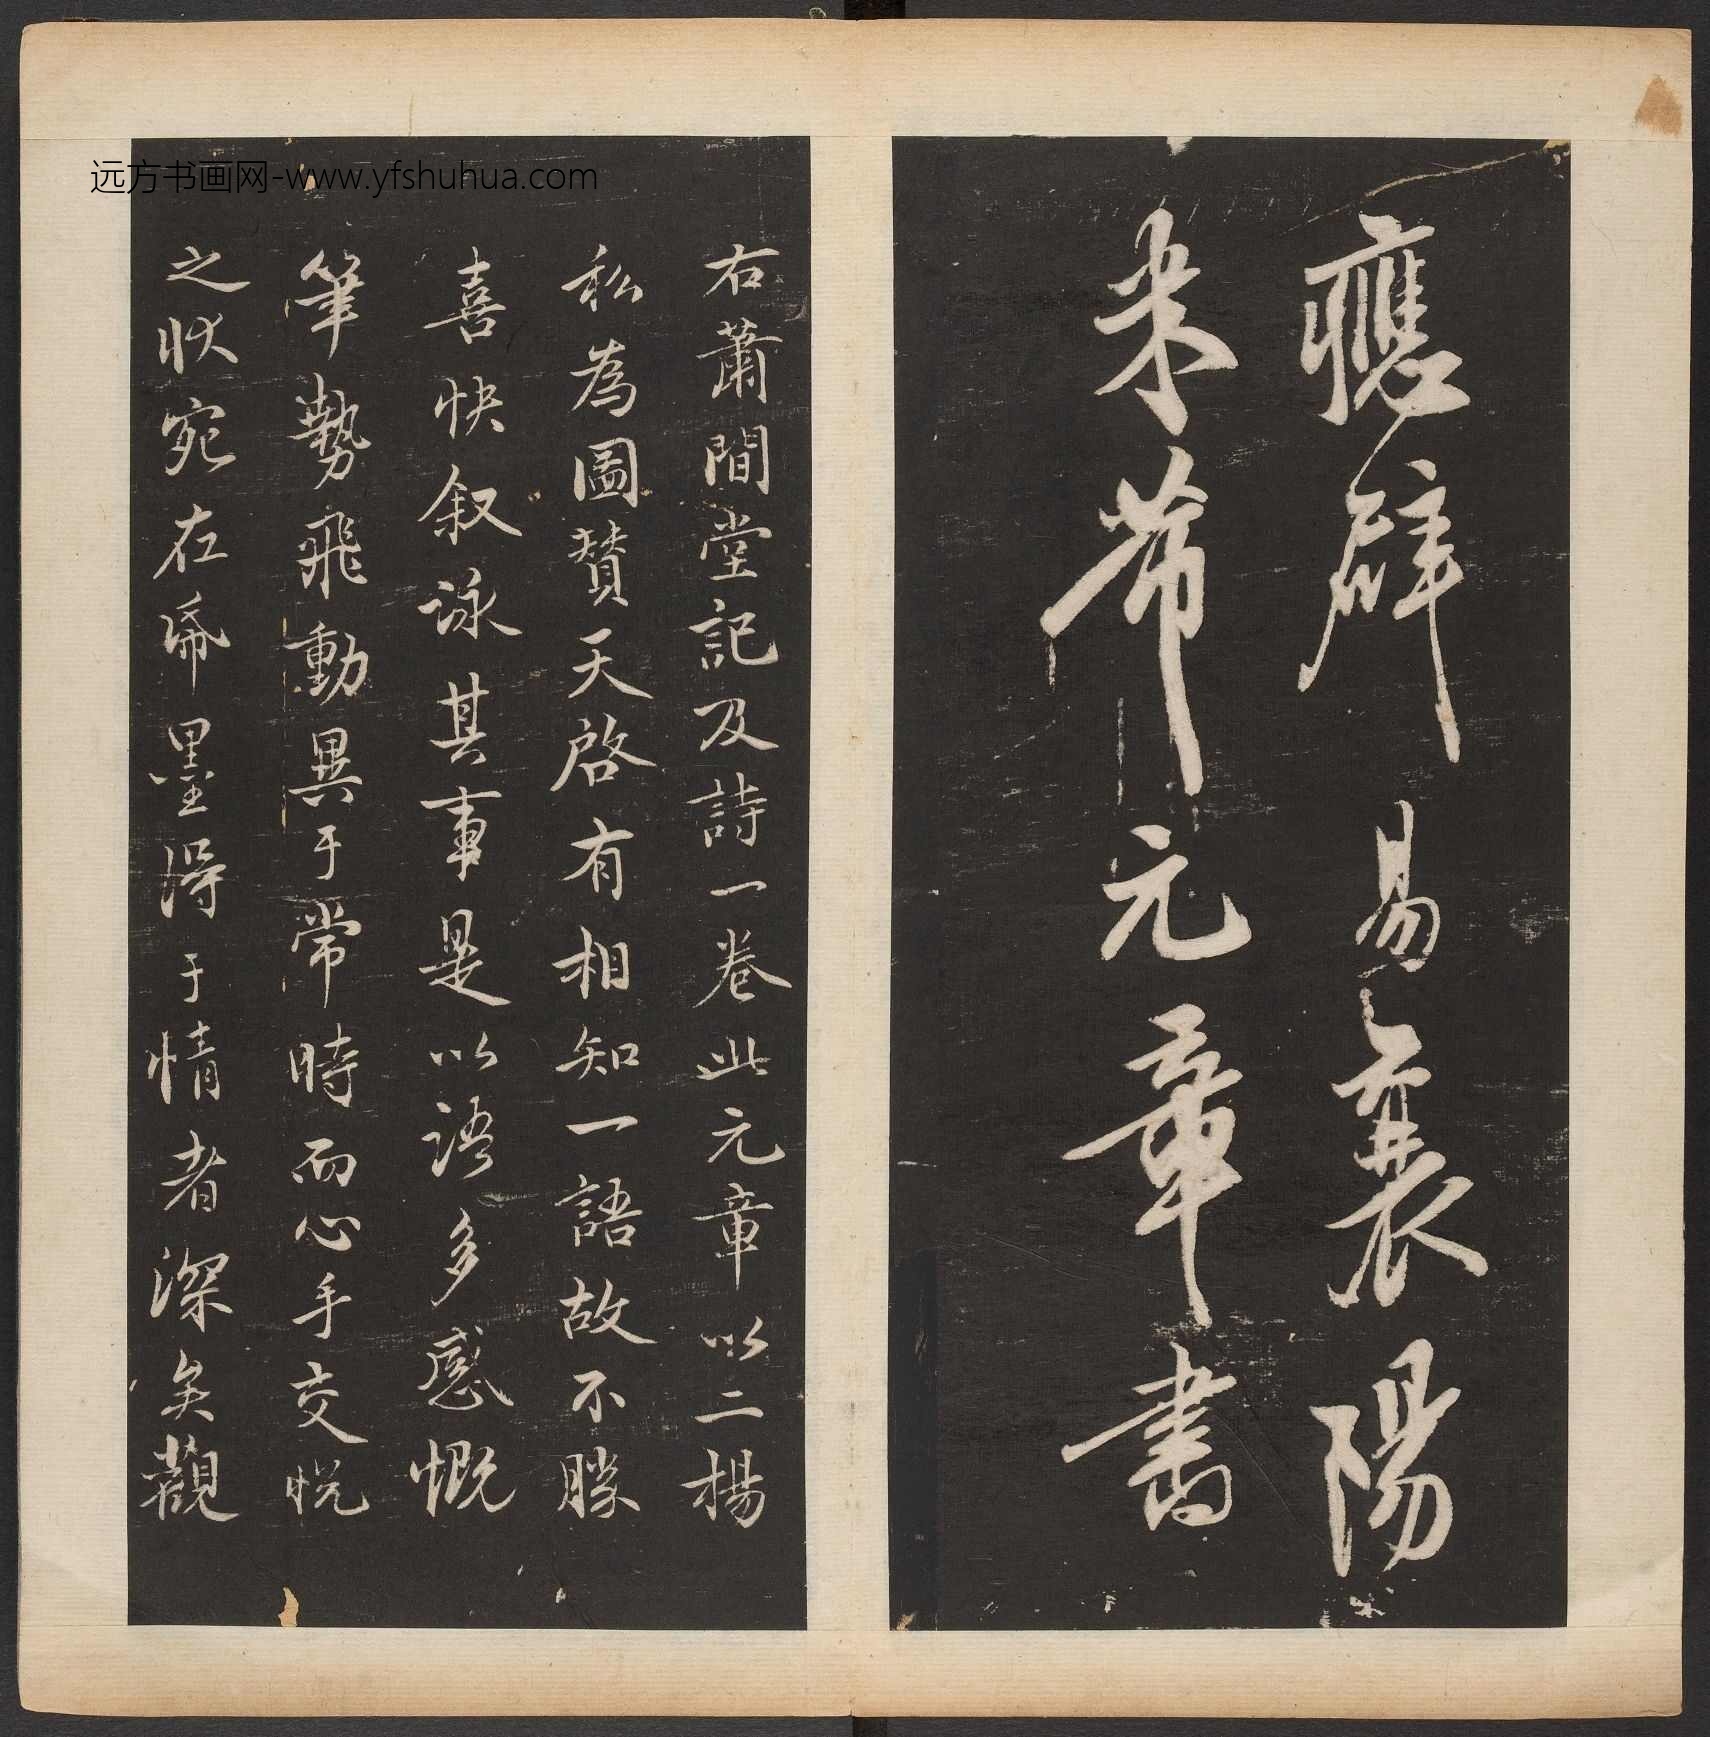 應辟易襄陽
米芾元章書
右蕭閒堂記及詩一卷此元章以二楊
私為圖贊天啓有相知一語故不勝
喜快叙詠其事是以語多感慨
筆勢飛動異于常時而心手交悦
之狀宛在紙墨得于情者深矣觀
远方书画网-www.yfshuhua.com